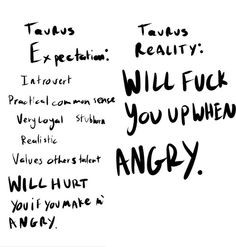 Taurus
Expectation:
Introvert
Practical common sense
Very Loyal Stubborn
Realistic
Values others talent
WILL HURT
YOU if YOU MAKE ME
ANGRY.
Taurus
REALITY:
WILL FUCK
YOU UP WHEN
ANGRY.